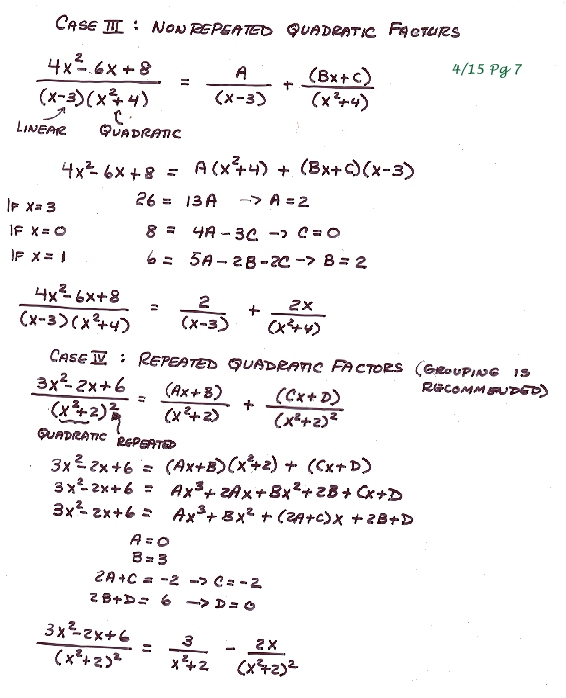 CASE III : NONREPEATED QUADRATIC FACTORS
4/15 Pg 7
4x²-6x+8 / (x-3)(x²+4) = A / (x-3) + (Bx+C) / (x²+4)
LINEAR QUADRATIC
4x²-6x+8 = A(x²+4) + (Bx+C)(x-3)
IF X=3 26 = 13A -> A=2
IF X=0 8 = 4A-3C -> C=0
IF X=1 6 = 5A-2B-2C -> B=2
4x²-6x+8 / (x-3)(x²+4) = 2 / (x-3) + 2x / (x²+4)
CASE IV : REPEATED QUADRATIC FACTORS (GROUPING IS RECOMMENDED)
3x²-2x+6 / (x²+2)² = (Ax+B) / (x²+2) + (Cx+D) / (x²+2)²
QUADRATIC REPEATED
3x²-2x+6 = (Ax+B)(x²+2) + (Cx+D)
3x²-2x+6 = Ax³+2Ax+Bx²+2B+Cx+D
3x²-2x+6 = Ax³+Bx²+(2A+C)x+2B+D
A=0
B=3
2A+C = -2 -> C=-2
2B+D = 6 -> D=0
3x²-2x+6 / (x²+2)² = 3 / x²+2 - 2x / (x²+2)²